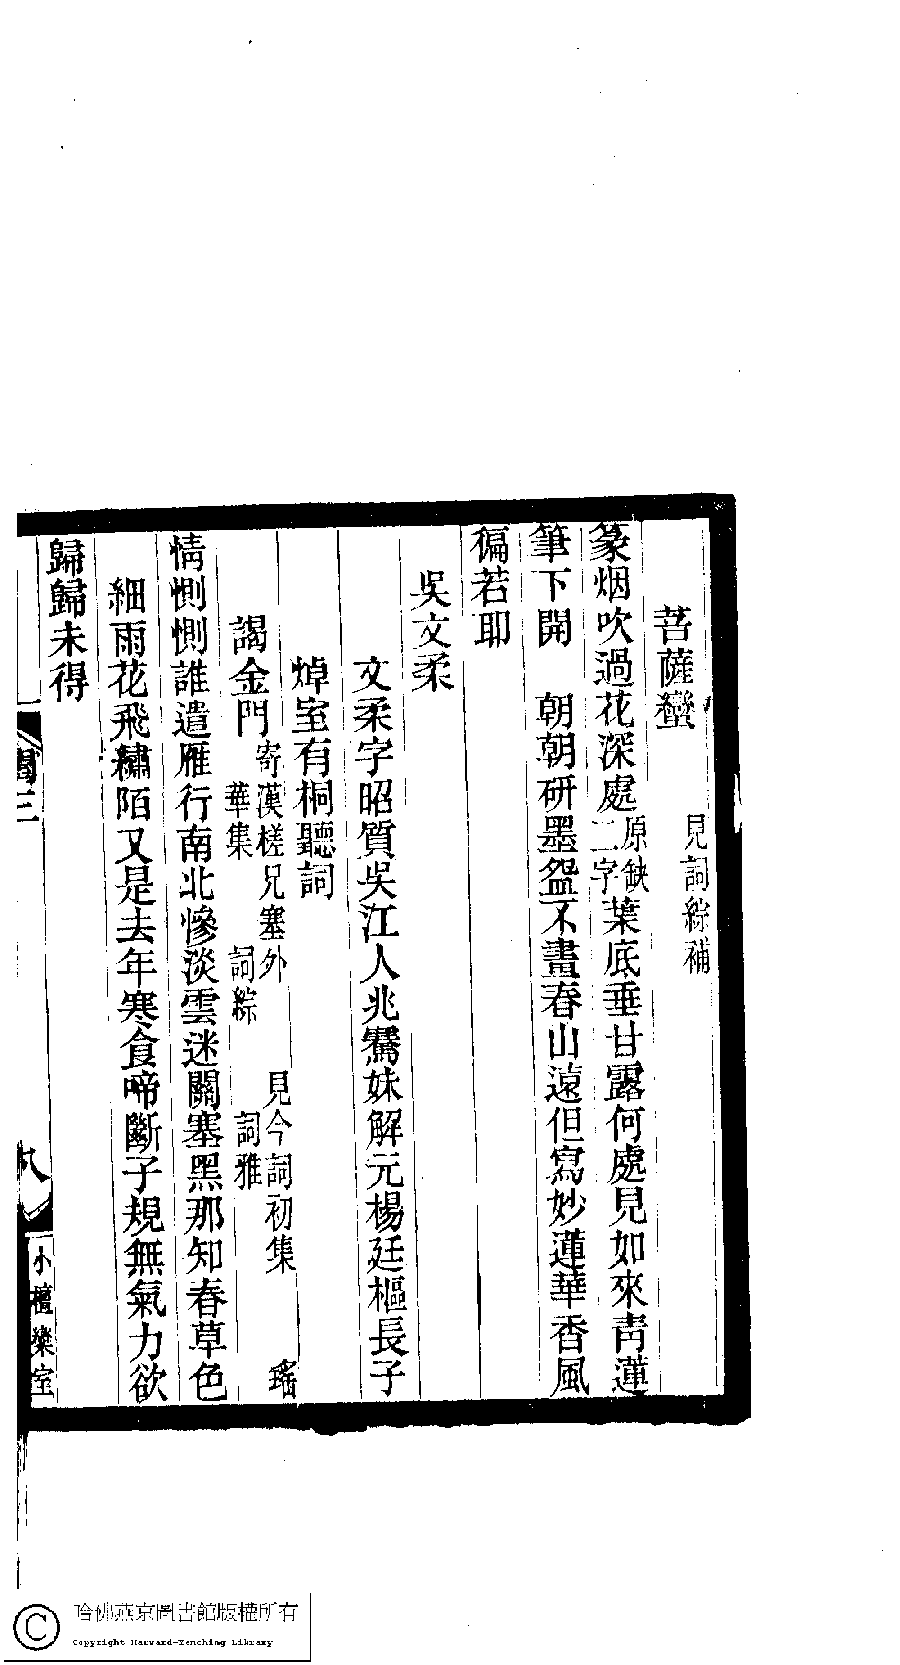 菩薩蠻　見詞綜補
篆烟吹過花深處原缺二字葉底垂甘露何處見如來青蓮
筆下開　朝朝研墨盌不畫春山遠但寫妙蓮華香風
徧若耶
吳文柔
文柔字昭質吳江人兆騫妹解元楊廷樞長子
焯室有桐聽詞
謁金門　寄漢槎兄塞外　見今詞初集　瑤華集　詞綜　詞雅
情惻惻誰遣雁行南北慘淡雲迷關塞黑那知春草色
細雨花飛繡陌又是去年寒食啼斷子規無氣力欲
歸歸未得
閨三
八
小檀欒室
哈佛燕京圖書館版權所有
Copyright Harvard-Yenching Library